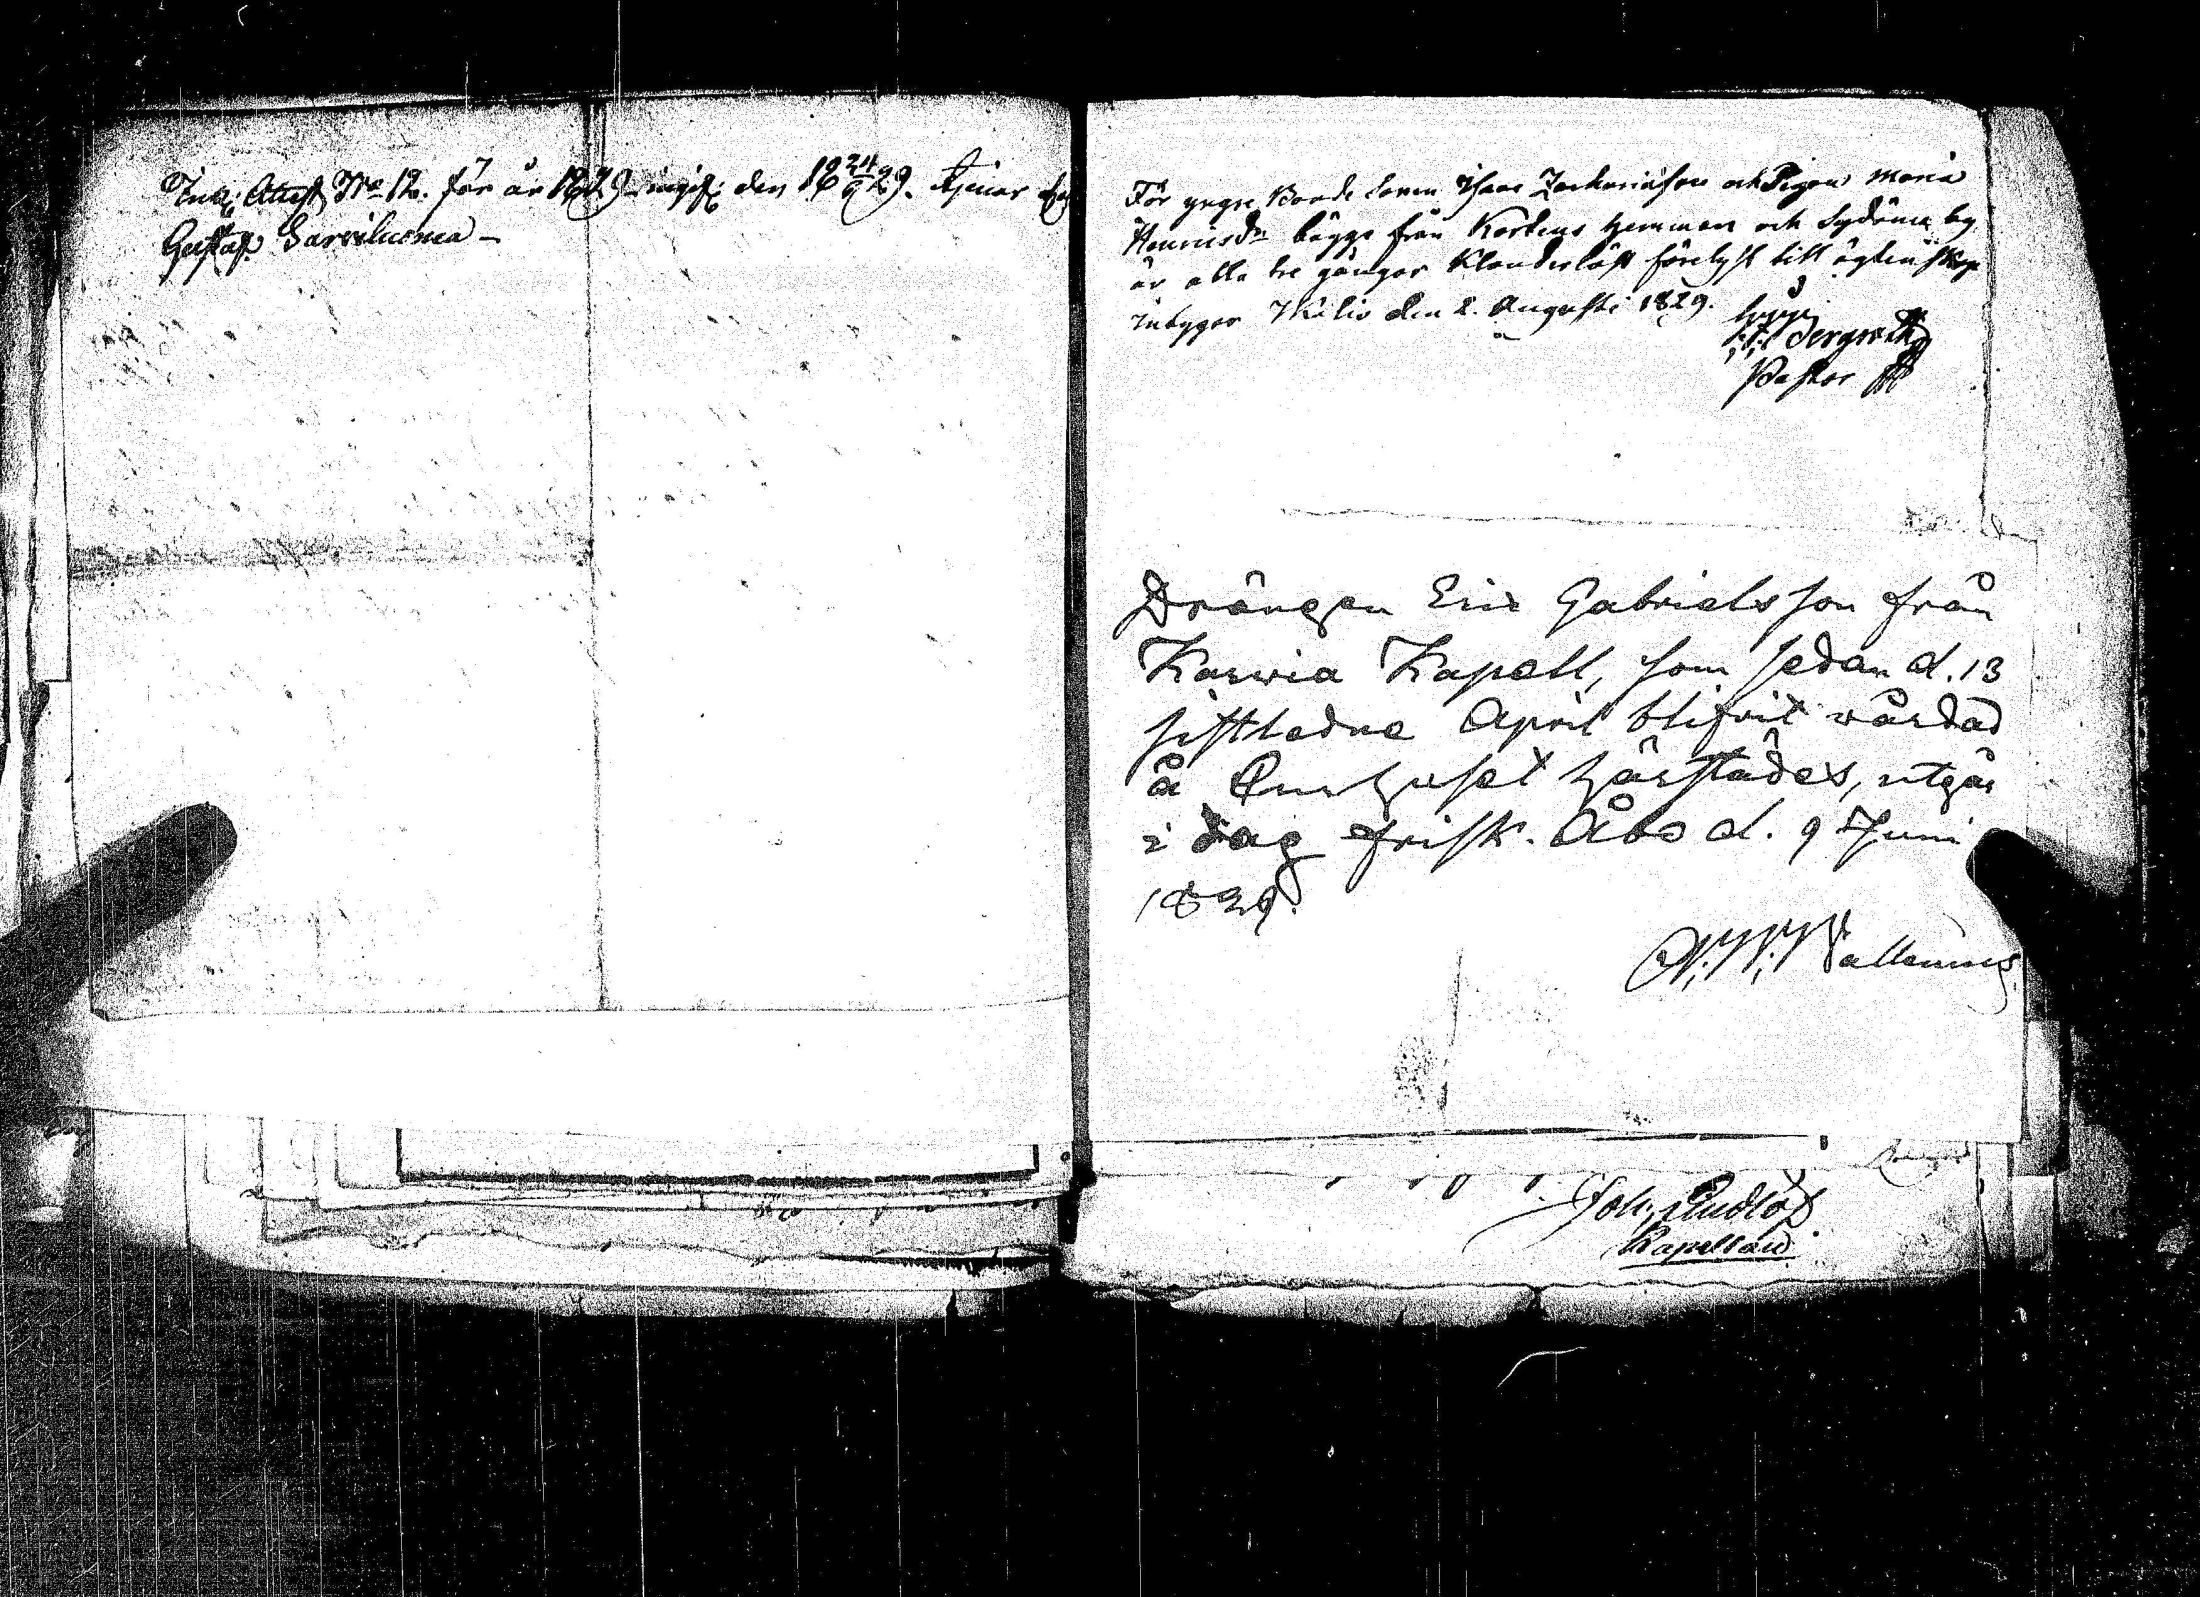 Ink. Attest No 12. för år 1829. ingif. den 18 24/6 29. tjenar
Gustaf Sarviluoma –
För yngre Bonde Sonen Isaac Zachariæson och Pigan Maria
Henricsdr bägge från Kortens hemman och Sydänma by
är alla tre gångor Klanderlöst förelyst till ägtenskap
intygar Ikalis den 2. Augusti 1829.
Pastor
Drängen Eric Gabrielsson från
Karvia Kapell, som sedan d. 13
sistledne April blifvit vårdad
å Curhuset härstädes, utgår
i dag frisk. Åbo d. 9 Juni
1829.
Joh.
Kapellan